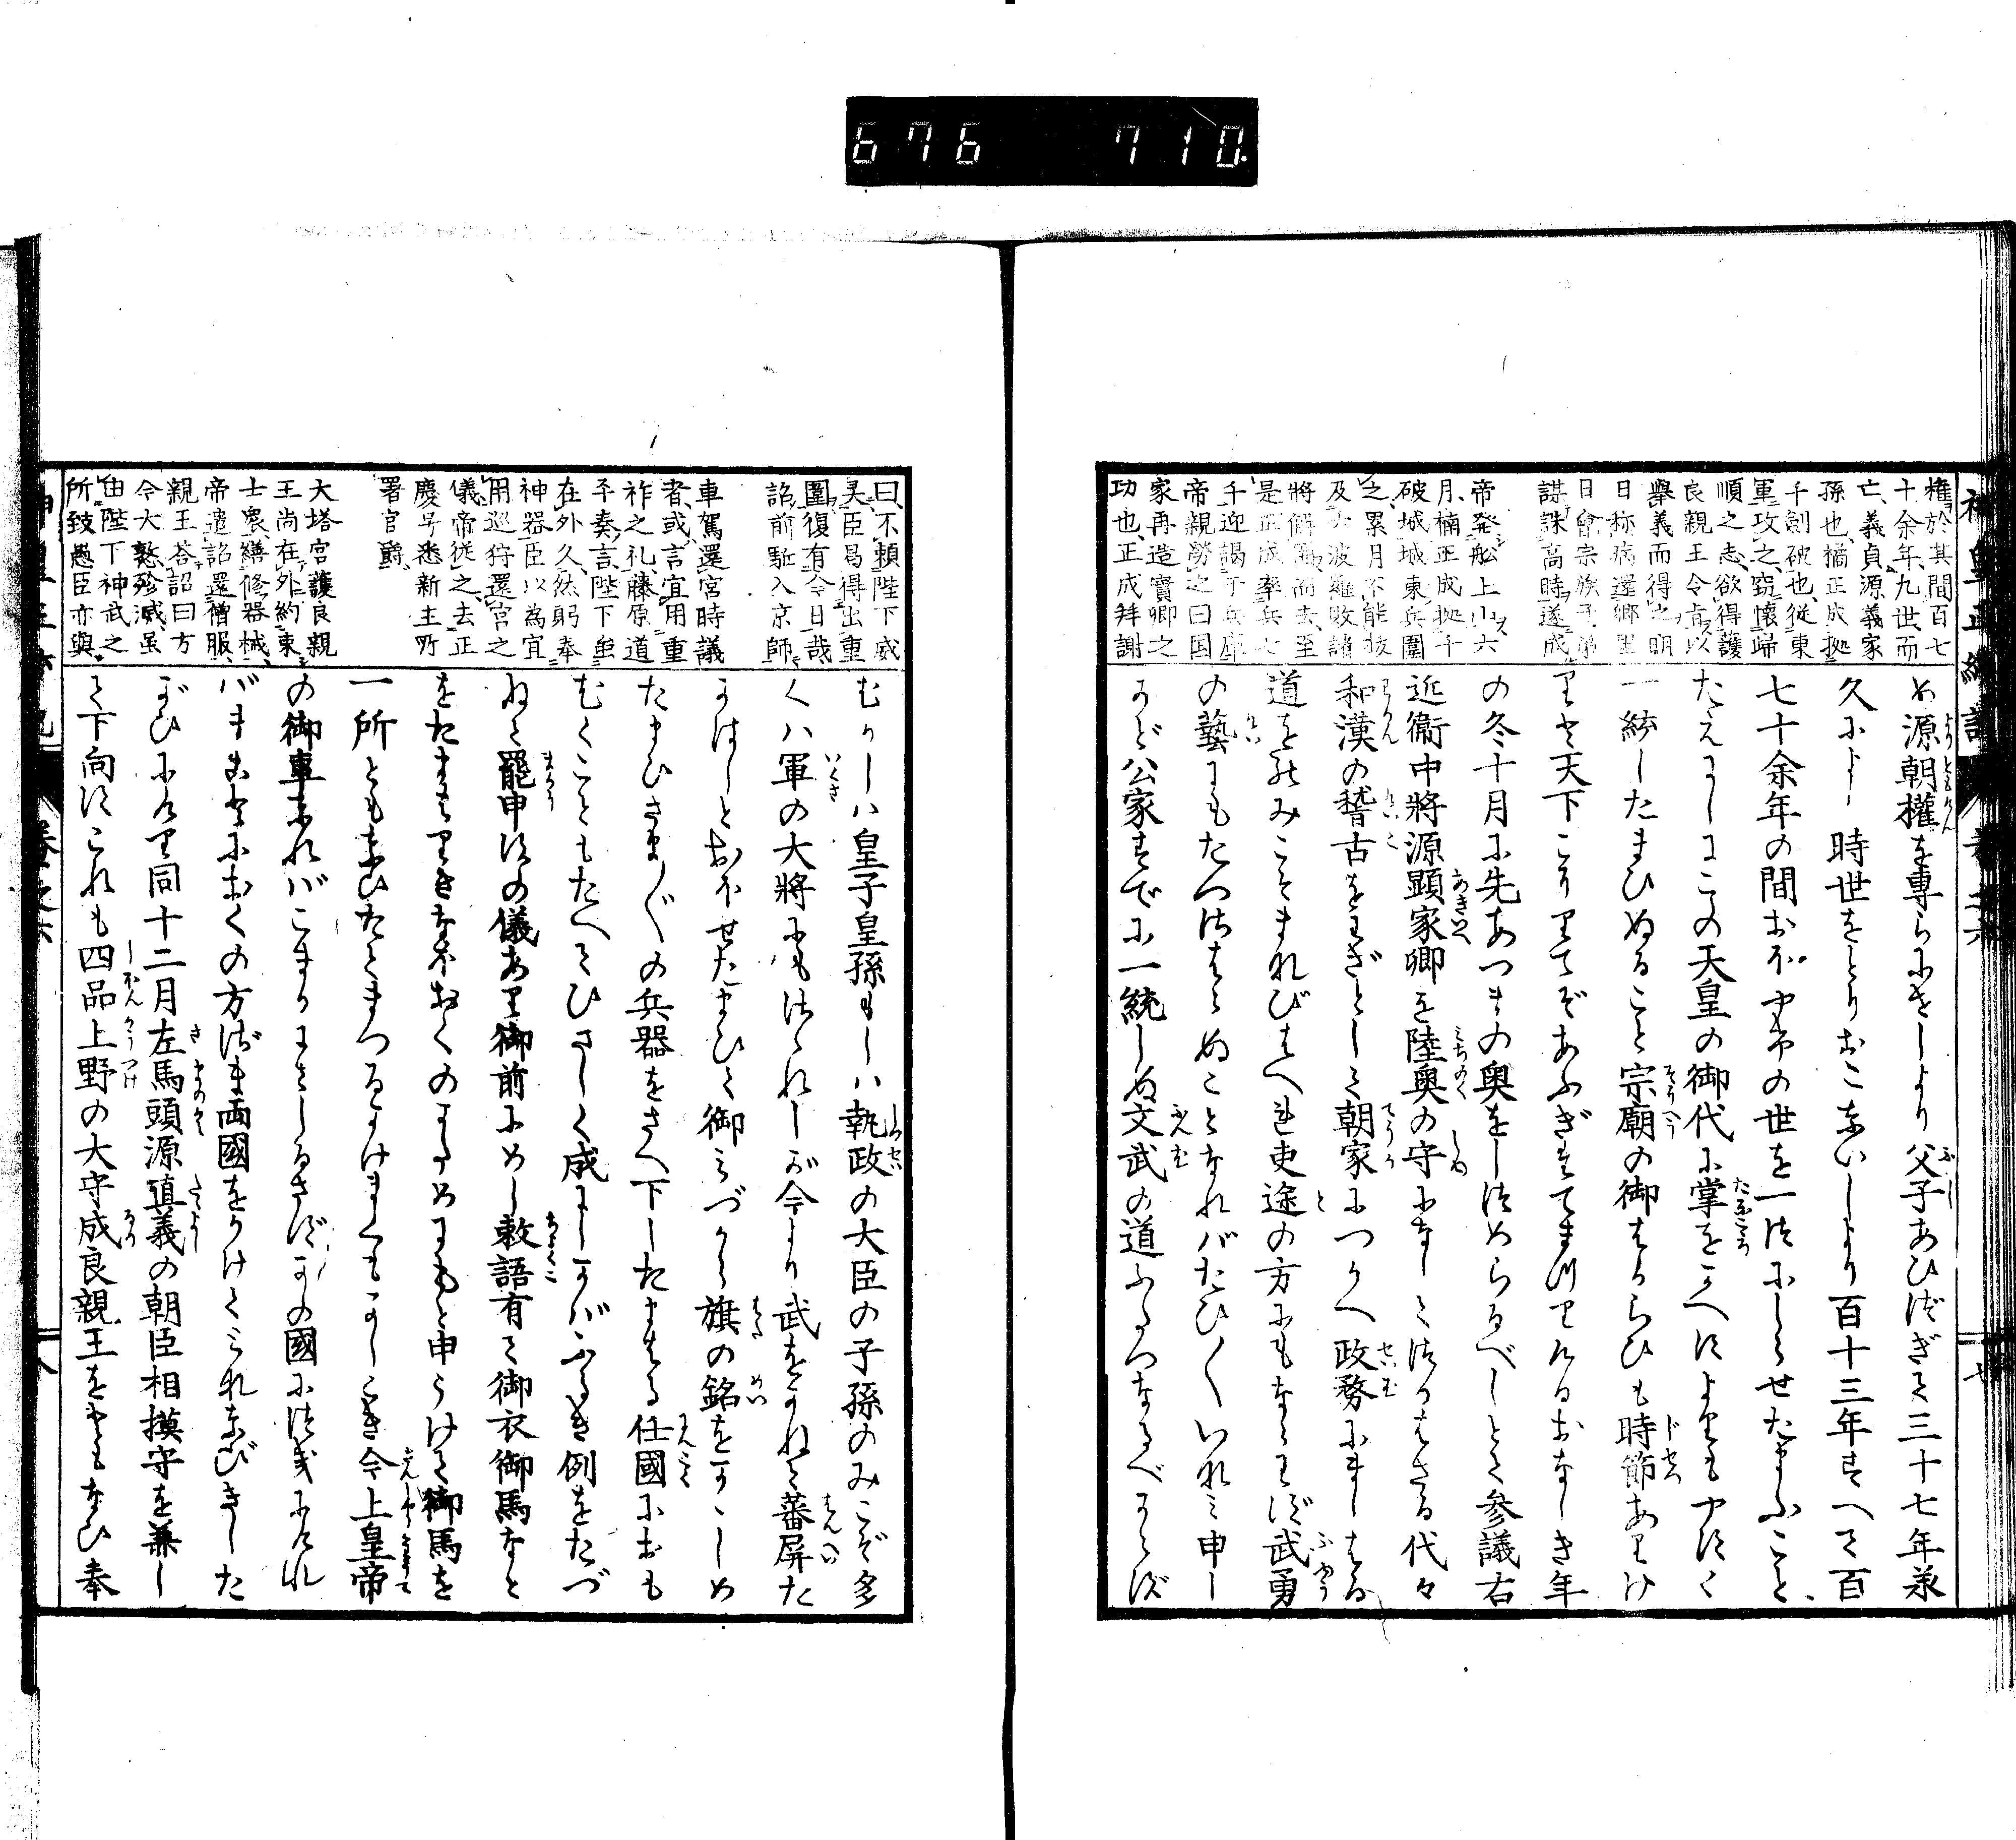 676 710
權於其間百七
十余年、九世而
亡、義貞源義家
孫也、橘正成拠
千劍破也、從東
軍攻之、竊懷歸
順之志、欲得護
良親王令旨以
擧義而得之明
日称病還郷里
日會宗族子弟
謀誅高時遂成
帝発舩上山六
月、楠正成拠千
破城城東兵圍
之累月不能抜
及六波羅敗諸
將解隔而去、至
是正成率兵七
千迎謁于兵庫
帝親勞之曰国
家再造實卿之
功也、正成拜謝
め源朝權を專らにせしより父子あひつぎて三十七年承
久により時世をとりおこなひしより百十三年すべて百
七十余年の間おほやけの世を一つにしらせたまふこと
たえにしにこの天皇の御代に掌をかへすよりもやすく
一統したまひぬること宗廟の御はからひも時節ありけ
りと天下こぞりてぞあふぎたてまつりけるおなじき年
の冬十月に先あつまの奥をしづめらるべしとて参議右
近衞中將源顕家卿を陸奥の守になしてつかはさる代々
和漢の稽古をわざとして朝家につかへ政務にまじはる
道をのみこそまなびはべれ吏途の方にもならはず武勇
の藝にもたづさはらぬことなればたび〳〵いなみ申し
かど公家すでに一統しぬ文武の道ふたつなるべからず
曰、不頼陛下威
灵臣曷得出重
圍復有今日哉
詔前駈入京師
車駕還宮時議
者或言宜用重
祚之礼藤原道
平奏言陛下雖
在外久、然躬奉
神器臣以為宜
用巡狩還宮之
儀帝從之、去正
慶号悉新主所
署官爵
大塔宮護良親
王尚在外約束
士衆繕修器械
帝遣詔還僧服、
親王荅詔曰方
今大憝殄滅虽
由陛下神武之
所致愚臣亦與
むかしハ皇子皇孫もしハ執政の大臣の子孫のみこぞ多
くハ軍の大將にもさゝれしが今より武をかねて蕃屏た
るべしとおほせたまひて御みづから旗の銘をかゝしめ
たまひさま〴〵の兵器をさへ下したまはる任國におも
むくこともたへてひさしく成にしかばふるき例をたづ
ねて罷申の儀あり御前にめし敕語有て御衣御馬なと
をたまはりきなほおくのかためにもと申うけて御馬を
一所ともなひたてまつるかけまくもかしこき今上皇帝
の御事なればこまかにはしるさずかの國につきにけれ
バまことにおくの方ざま両國をかけてみなゝびきした
がひにけり同十二月左馬頭源直義の朝臣相摸守を兼し
て下向すこれも四品上野の大守成良親王をともなひ奉